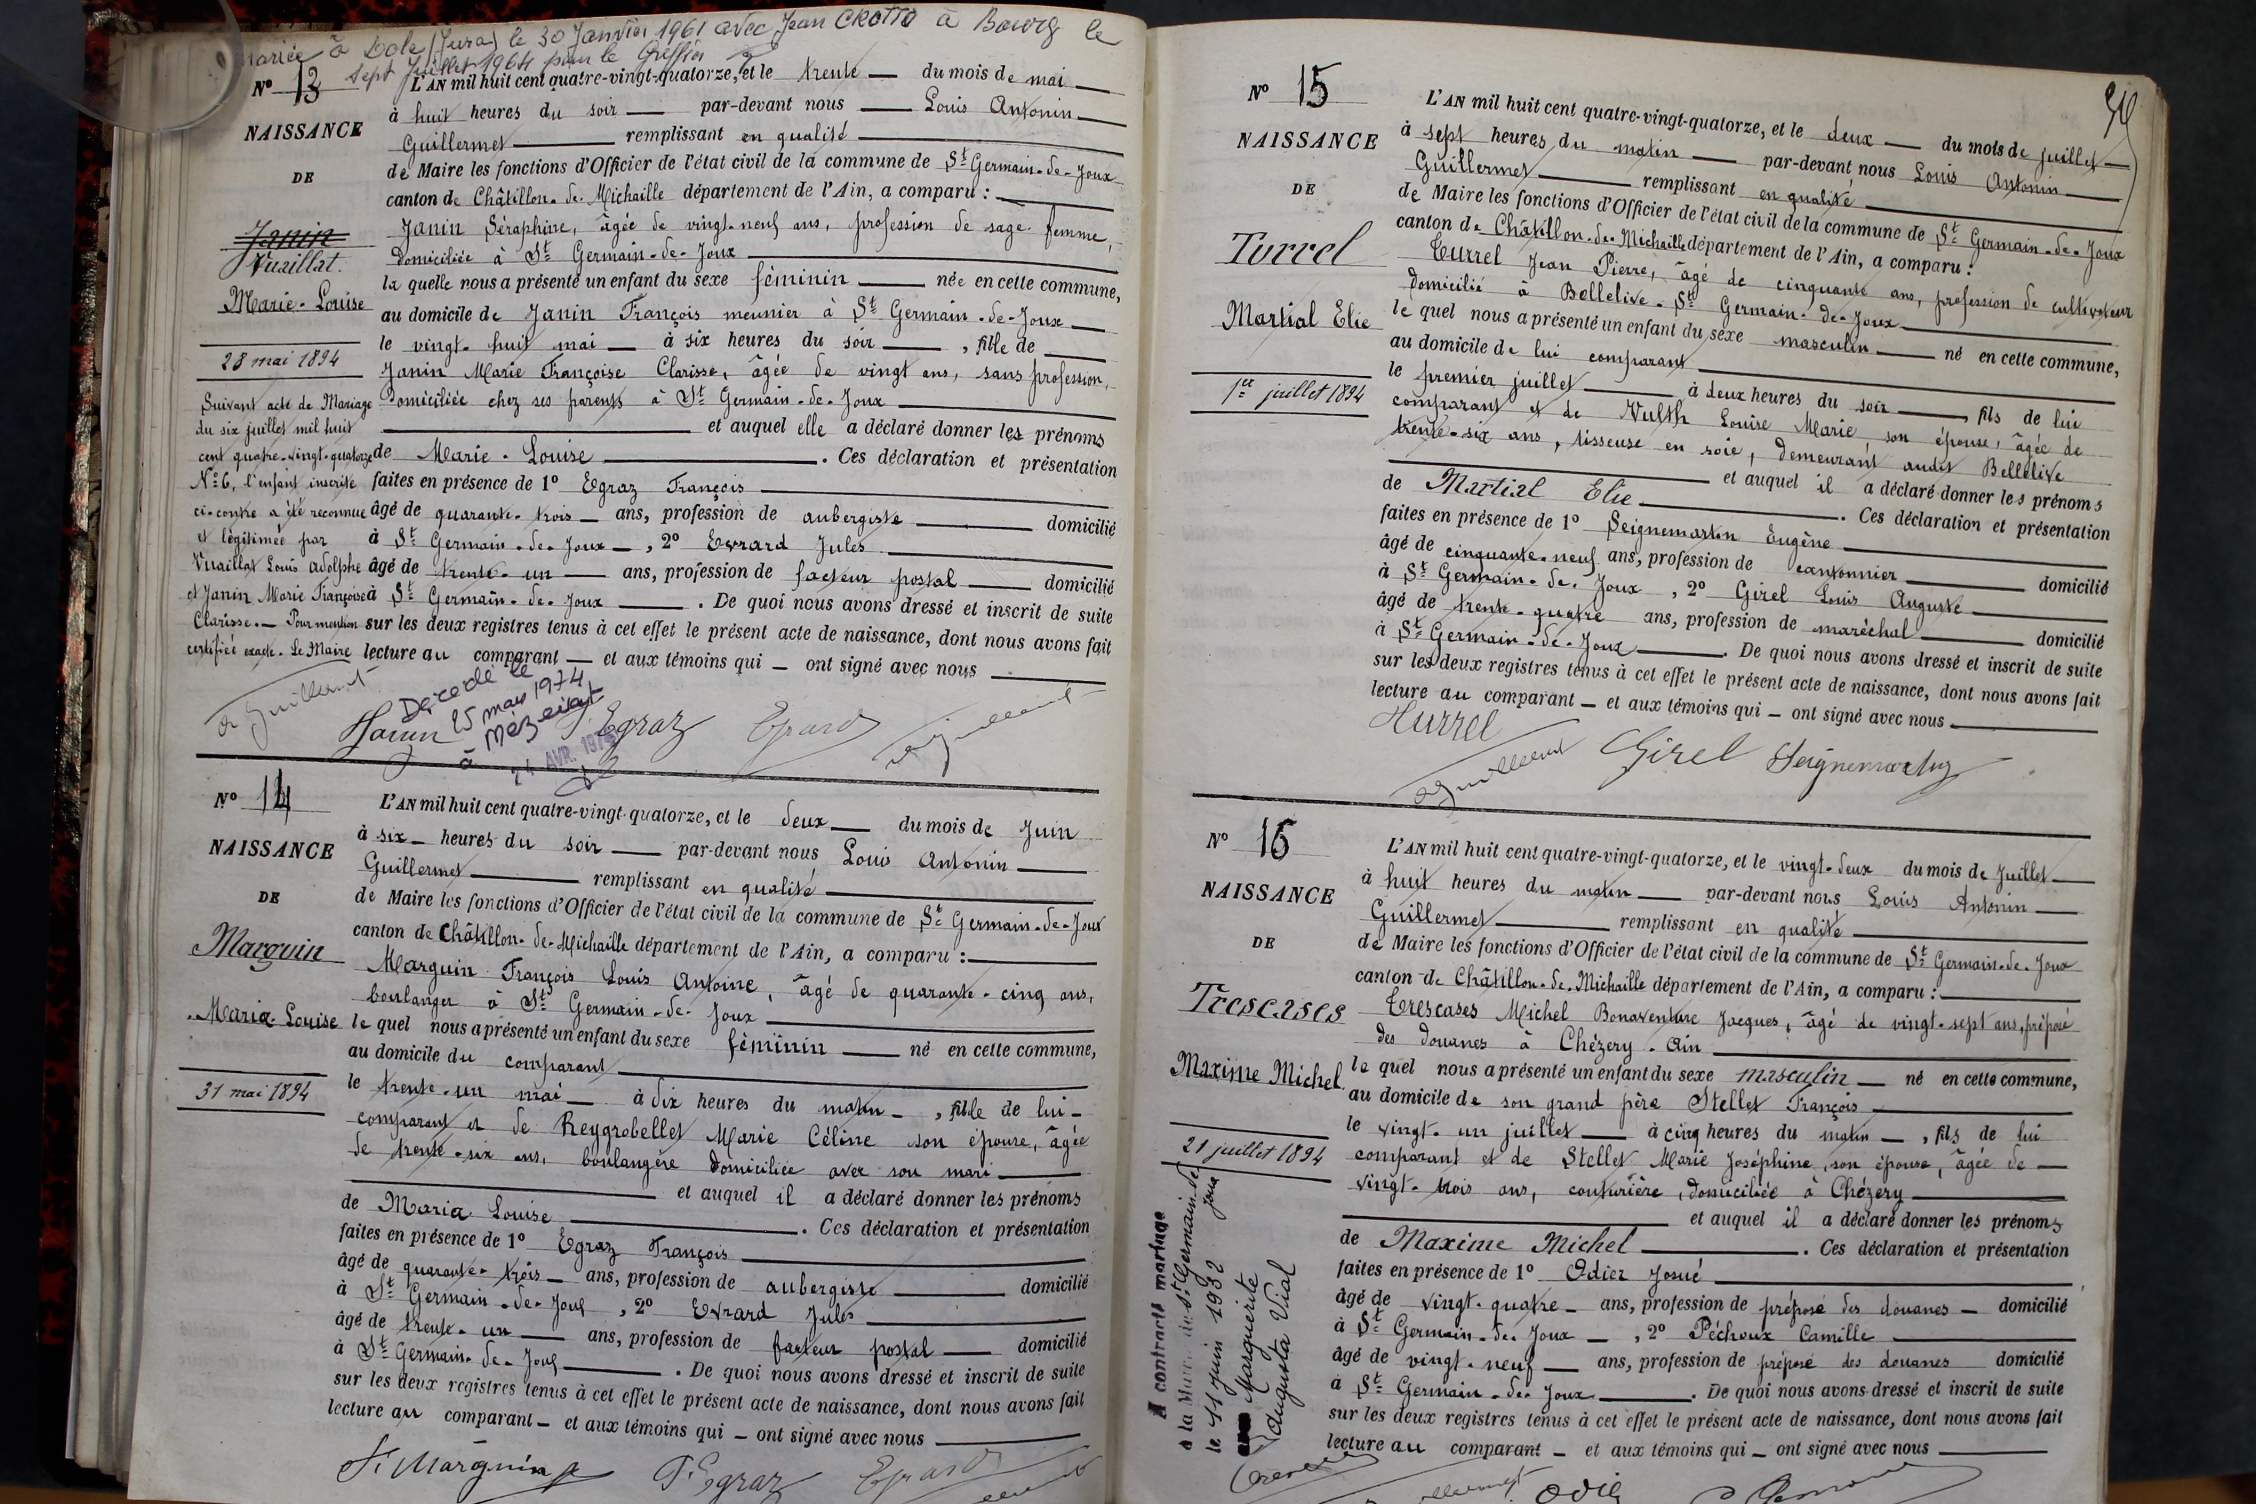 mariée à Dole (Jura) le 30 Janvier 1961 avec Jean CROTTO à Bourg le
sept Juillet 1964 pour le Greffier
N° 13
NAISSANCE
DE
Janin
Vuaillat.
Marie-Louise
28 mai 1894
Suivant acte de Mariage
du six juillet mil huit
cent quatre-vingt-quatorze
N° 6, l'enfant inscrite
ci-contre a été reconnue
et légitimée par
Vuaillat Louis Adolphe
et Janin Marie Françoise
Clarisse. — Pour mention
certifiée exacte. Le Maire
L'AN mil huit cent quatre-vingt-quatorze, et le trente — du mois de mai —
à huit heures du soir — par-devant nous — Louis Antonin —
Guillermet — remplissant en qualité —
de Maire les fonctions d'Officier de l'état civil de la commune de St Germain-de-Joux
canton de Châtillon-de-Michaille département de l'Ain, a comparu : —
Janin Séraphine, âgée de vingt-neuf ans, profession de sage-femme,
domiciliée à St Germain-de-Joux —
la quelle nous a présenté un enfant du sexe féminin — née en cette commune,
au domicile de Janin François meunier à St Germain-de-Joux —
le vingt-huit mai — à six heures du soir — , fille de —
Janin Marie Françoise Clarisse, âgée de vingt ans, sans profession,
domiciliée chez ses parents à St Germain-de-Joux —
— et auquel elle a déclaré donner les prénoms
de Marie-Louise — . Ces déclaration et présentation
faites en présence de 1° Egraz François —
âgé de quarante-trois — ans, profession de aubergiste — domicilié
à St Germain-de-Joux — , 2° Evrard Jules —
âgé de trente-un — ans, profession de facteur postal — domicilié
à St Germain-de-Joux — . De quoi nous avons dressé et inscrit de suite
sur les deux registres tenus à cet effet le présent acte de naissance, dont nous avons fait
lecture au comparant — et aux témoins qui — ont signé avec nous —
Décédé le
25 mars 1974
à Mézeriat
AVR. 1974
Janin Egraz Evrard Guillermet
N° 14
NAISSANCE
DE
Marguin
Maria-Louise
31 mai 1894
L'AN mil huit cent quatre-vingt-quatorze, et le deux — du mois de Juin
à six — heures du soir — par-devant nous Louis Antonin —
Guillermet — remplissant en qualité —
de Maire les fonctions d'Officier de l'état civil de la commune de St Germain-de-Joux
canton de Châtillon-de-Michaille département de l'Ain, a comparu : —
Marguin François Louis Antoine, âgé de quarante-cinq ans,
boulanger à St Germain-de-Joux —
le quel nous a présenté un enfant du sexe féminin — né en cette commune,
au domicile du comparant —
le trente-un mai — à dix heures du matin — , fille de lui —
comparant et de Reygrobellet Marie Céline son épouse, âgée
de trente-six ans, boulangère domiciliée avec son mari —
— et auquel il a déclaré donner les prénoms
de Maria Louise — . Ces déclaration et présentation
faites en présence de 1° Egraz François —
âgé de quarante-trois — ans, profession de aubergiste — domicilié
à St Germain-de-Joux , 2° Evrard Jules —
âgé de trente-un — ans, profession de facteur postal — domicilié
à St Germain-de-Joux — . De quoi nous avons dressé et inscrit de suite
sur les deux registres tenus à cet effet le présent acte de naissance, dont nous avons fait
lecture au comparant — et aux témoins qui — ont signé avec nous —
Marguin F. Egraz Evrard
N° 15
NAISSANCE
DE
Turrel
Martial Elie
1er juillet 1894
L'AN mil huit cent quatre-vingt-quatorze, et le deux — du mois de juillet —
à sept heures du matin — par-devant nous Louis Antonin —
Guillermet — remplissant en qualité —
de Maire les fonctions d'Officier de l'état civil de la commune de St Germain-de-Joux
canton de Châtillon-de-Michaille département de l'Ain, a comparu :
Turrel Jean Pierre, âgé de cinquante ans, profession de cultivateur
domicilié à Bellelive-St Germain-de-Joux —
le quel nous a présenté un enfant du sexe masculin — né en cette commune,
au domicile de lui comparant —
le premier juillet — à deux heures du soir — , fils de lui
comparant et de Vulth Louise Marie, son épouse, âgée de
trente-six ans, tisseuse en soie, demeurant audit Bellelive
— et auquel il a déclaré donner les prénoms
de Martial Elie — . Ces déclaration et présentation
faites en présence de 1° Seignemartin Eugène —
âgé de cinquante-neuf ans, profession de cantonnier — domicilié
à St Germain-de-Joux , 2° Girel Louis Auguste —
âgé de trente-quatre ans, profession de maréchal — domicilié
à St Germain-de-Joux — . De quoi nous avons dressé et inscrit de suite
sur les deux registres tenus à cet effet le présent acte de naissance, dont nous avons fait
lecture au comparant — et aux témoins qui — ont signé avec nous —
Turrel
Guillermet Girel Seignemartin
N° 16
NAISSANCE
DE
Trescases
Maxime Michel
21 juillet 1894
A contracté mariage
à la Mairie de St Germain de Joux
le 11 juin 1932
Marguerite
Augusta Vial
L'AN mil huit cent quatre-vingt-quatorze, et le vingt-deux du mois de Juillet —
à huit heures du matin — par-devant nous Louis Antonin —
Guillermet — remplissant en qualité —
de Maire les fonctions d'Officier de l'état civil de la commune de St Germain-de-Joux
canton de Châtillon-de-Michaille département de l'Ain, a comparu : —
Trescases Michel Bonaventure Jacques, âgé de vingt-sept ans, préposé
des douanes à Chézery-Ain —
le quel nous a présenté un enfant du sexe masculin — né en cette commune,
au domicile de son grand père Stellet François —
le vingt-un juillet — à cinq heures du matin — , fils de lui
comparant et de Stellet Marie Joséphine, son épouse, âgée de —
vingt-trois ans, couturière, domiciliée à Chézery —
— et auquel il a déclaré donner les prénoms
de Maxime Michel — . Ces déclaration et présentation
faites en présence de 1° Odier Josué —
âgé de vingt-quatre — ans, profession de préposé des douanes — domicilié
à St Germain-de-Joux — , 2° Péchoux Camille —
âgé de vingt-neuf — ans, profession de préposé des douanes domicilié
à St Germain-de-Joux — . De quoi nous avons dressé et inscrit de suite
sur les deux registres tenus à cet effet le présent acte de naissance, dont nous avons fait
lecture au comparant — et aux témoins qui — ont signé avec nous —
Odier